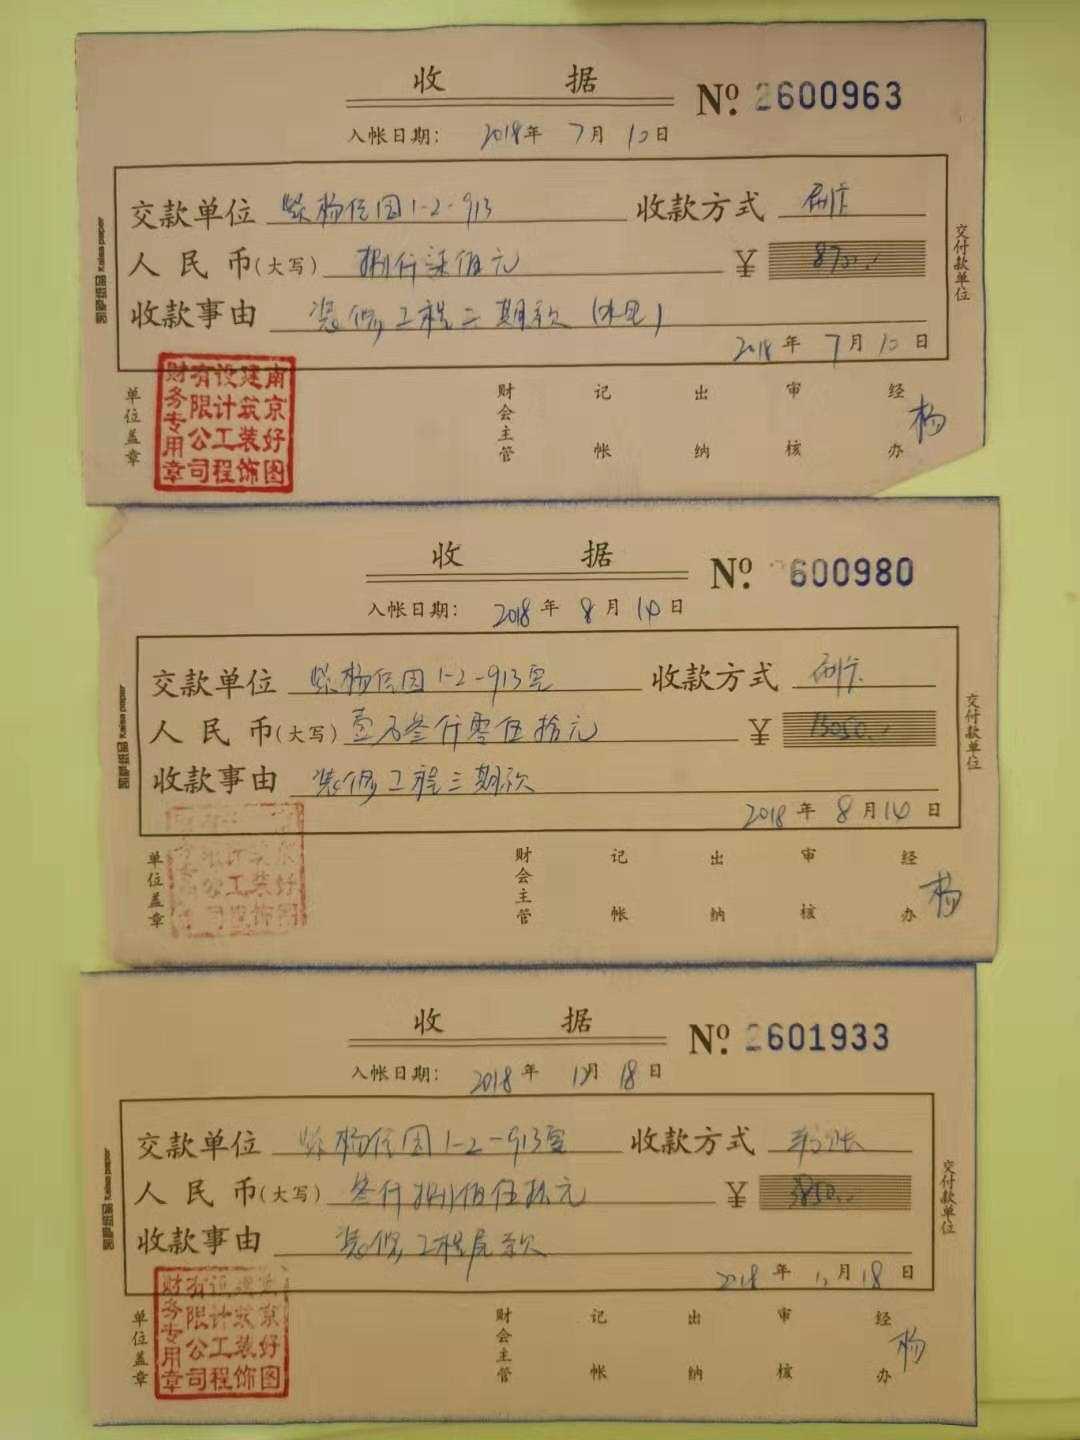 收 据
Nº. 2600963
入帐日期： 2018年 7月 10日
交款单位 紫杨佳园1-2-913 收款方式 刷卡
人民币(大写) 捌仟柒佰元 ¥ 8700.
收款事由 装修工程二期款（水电）
2018年 7月 10日
交付款单位
单位盖章 财会主管 记帐 出纳 审核 经办 杨
南京好图建筑装饰设计工程有限公司财务专用章
收 据
Nº. 600980
入帐日期： 2018年 8月 14日
交款单位 紫杨佳园1-2-913室 收款方式 刷卡
人民币(大写) 壹万叁仟零伍拾元 ¥ 13050.
收款事由 装修工程三期款
2018年 8月 14日
交付款单位
单位盖章 财会主管 记帐 出纳 审核 经办 杨
收 据
Nº. 2601933
入帐日期： 2018年 12月 18日
交款单位 紫杨佳园1-2-913室 收款方式 转账
人民币(大写) 叁仟捌佰伍拾元 ¥ 3850.
收款事由 装修工程尾款
2018年 12月 18日
交付款单位
单位盖章 财会主管 记帐 出纳 审核 经办 杨
南京好图建筑装饰设计工程有限公司财务专用章